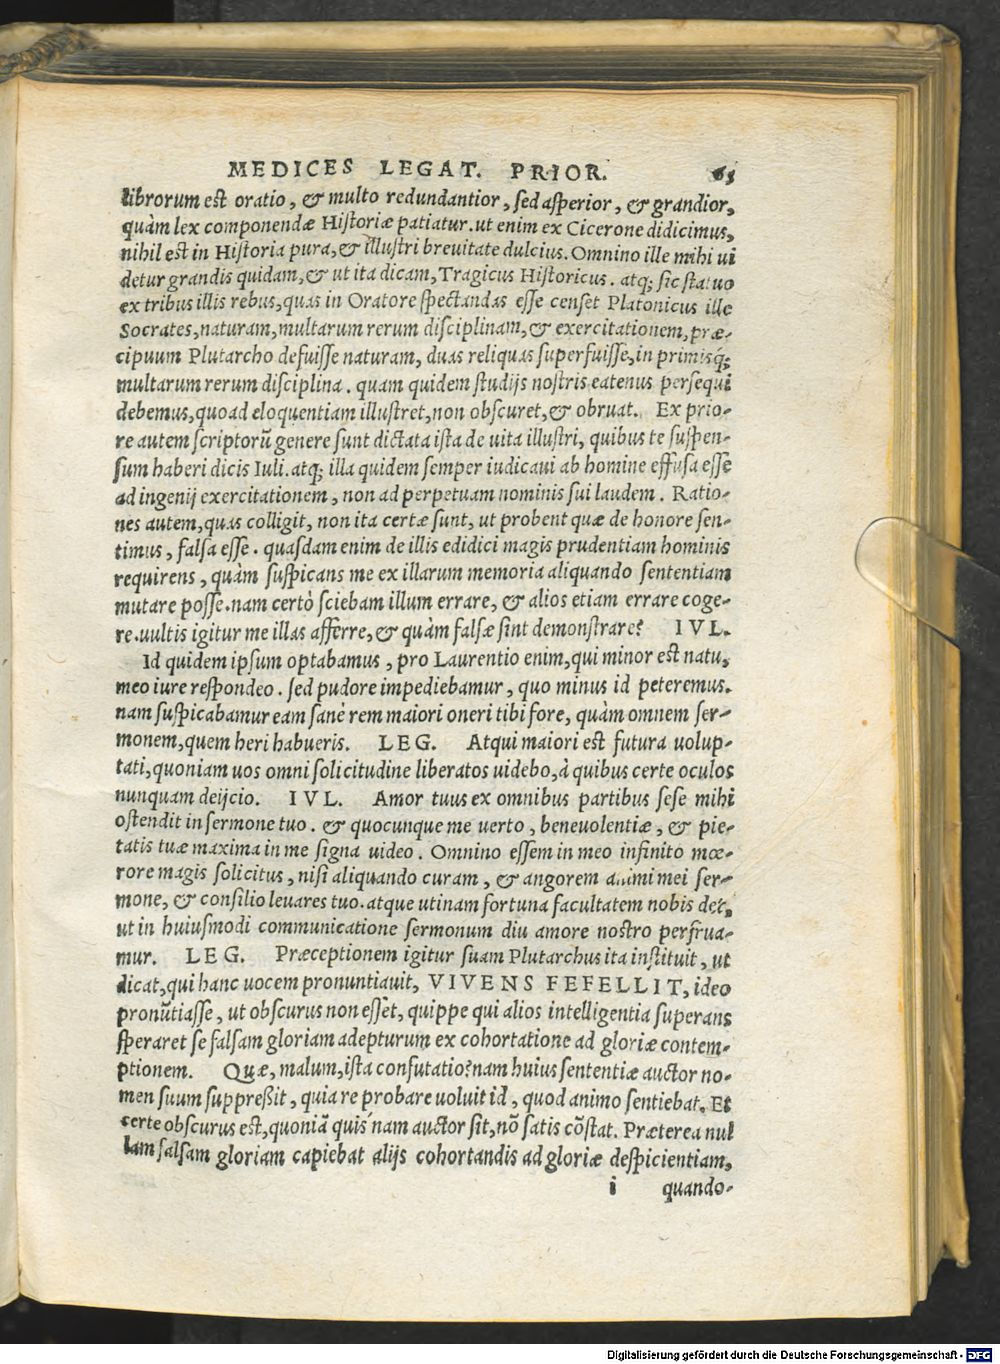 MEDICES LEGAT. PRIOR. 65
librorum est oratio, & multo redundantior, sed asperior, & grandior,
quàm lex componendæ Historiæ patiatur. ut enim ex Cicerone didicimus,
nihil est in Historia pura, & illustri breuitate dulcius. Omnino ille mihi ui
detur grandis quidam, & ut ita dicam, Tragicus Historicus. atq; sic statuo
ex tribus illis rebus, quas in Oratore spectandas esse censet Platonicus ille
Socrates, naturam, multarum rerum disciplinam, & exercitationem, præ-
cipuum Plutarcho defuisse naturam, duas reliquas superfuisse, in primisq́;
multarum rerum disciplina. quam quidem studijs nostris eatenus persequi
debemus, quoad eloquentiam illustret, non obscuret, & obruat. Ex prio-
re autem scriptorũ genere sunt dictata ista de uita illustri, quibus te suspen-
sum haberi dicis Iuli. atq; illa quidem semper iudicaui ab homine effusa esse
ad ingenij exercitationem, non ad perpetuam nominis sui laudem. Ratio-
nes autem, quas colligit, non ita certæ sunt, ut probent quæ de honore sen-
timus, falsa esse. quasdam enim de illis edidici magis prudentiam hominis
requirens, quàm suspicans me ex illarum memoria aliquando sententiam
mutare posse. nam certò sciebam illum errare, & alios etiam errare coge-
re. uultis igitur me illas afferre, & quàm falsæ sint demonstrare? IVL.
Id quidem ipsum optabamus, pro Laurentio enim, qui minor est natu,
meo iure respondeo. sed pudore impediebamur, quo minus id peteremus.
nam suspicabamur eam sanè rem maiori oneri tibi fore, quàm omnem ser-
monem, quem heri habueris. LEG. Atqui maiori est futura uolup-
tati, quoniam uos omni solicitudine liberatos uidebo, à quibus certe oculos
nunquam deijcio. IVL. Amor tuus ex omnibus partibus sese mihi
ostendit in sermone tuo. & quocunque me uerto, beneuolentiæ, & pie-
tatis tuæ maxima in me signa uideo. Omnino essem in meo infinito mœ-
rore magis solicitus, nisi aliquando curam, & angorem animi mei ser-
mone, & consilio leuares tuo. atque utinam fortuna facultatem nobis det,
ut in huiusmodi communicatione sermonum diu amore nostro perfrua-
mur. LEG. Præceptionem igitur suam Plutarchus ita instituit, ut
dicat, qui hanc uocem pronuntiauit, VIVENS FEFELLIT, ideo
pronũtiasse, ut obscurus non esset, quippe qui alios intelligentia superans
speraret se falsam gloriam adepturum ex cohortatione ad gloriæ contem-
ptionem. Quæ, malum, ista confutatio? nam huius sententiæ auctor no-
men suum suppreßit, quia re probare uoluit id, quod animo sentiebat. Et
certe obscurus est, quoniã quis nam auctor sit, nõ satis cõstat. Præterea nul
lam falsam gloriam capiebat alijs cohortandis ad gloriæ despicientiam,
i quando-
Digitalisierung gefördert durch die Deutsche Forschungsgemeinschaft - DFG